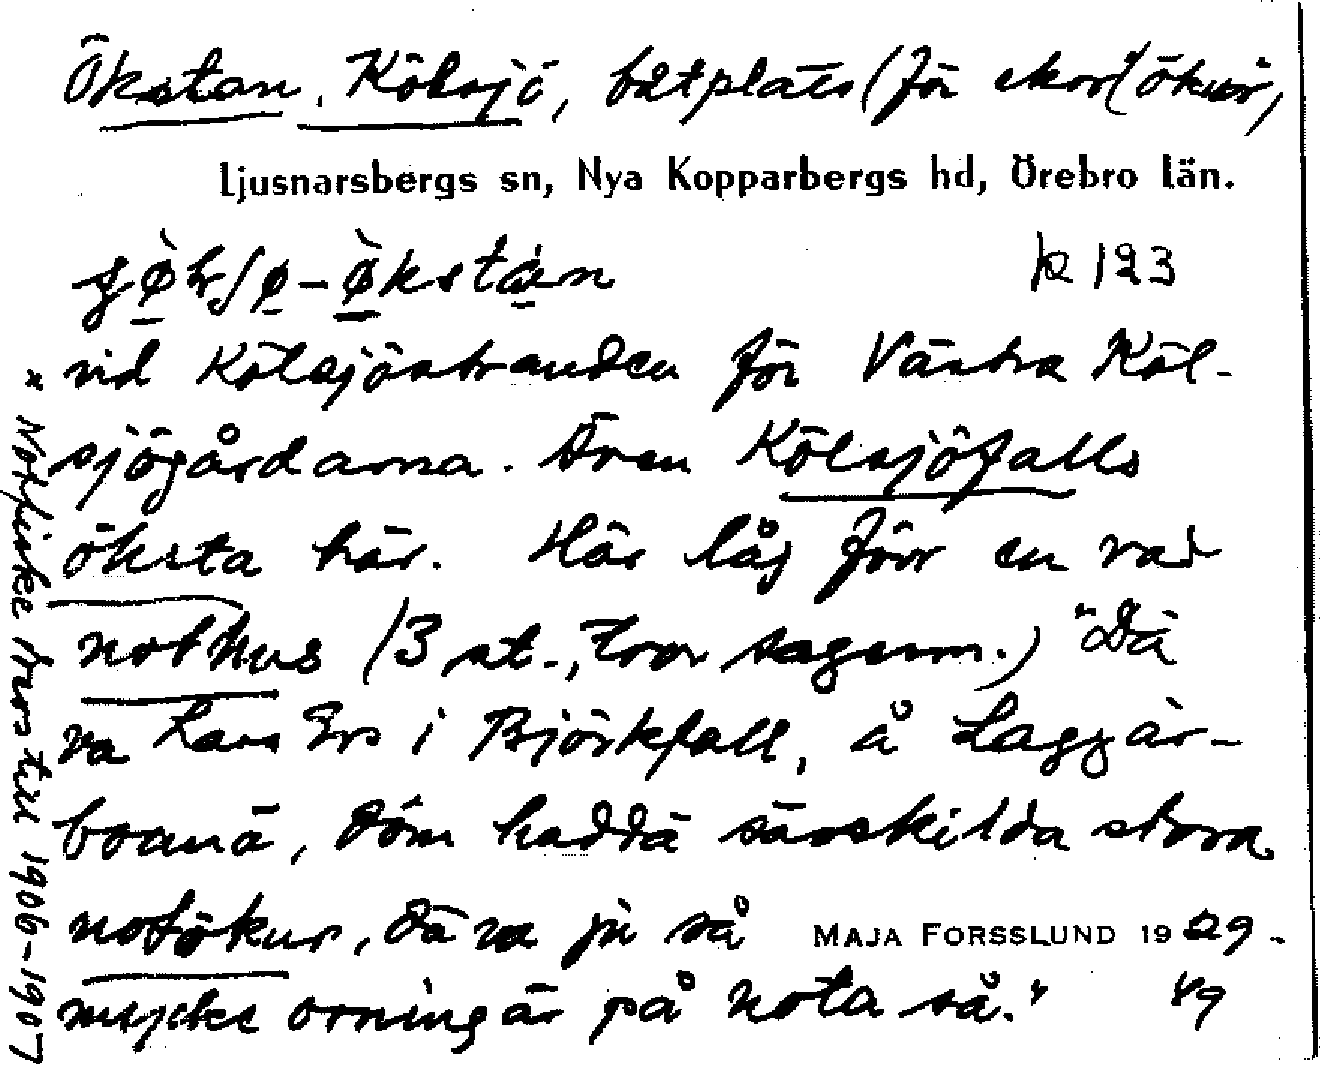 Ökstan, Kölsjö, båtplats (för ekor "ökur",
Ljusnarsbergs sn, Nya Kopparbergs hd, Örebro län.
k 123
vid Kölsjöstranden för Västra Köl-
sjögårdarna. Även Kölsjöfalls
öksta här. Här låg förr en rad
nothus (3 st., tror sagesm.) "Dä
va Lars Ers i Björkfall, å Laggar-
boanä, döm haddä särskilda stora
notökur, dä va ju så
MAJA FORSSLUND 1929-
mycke orningär på nota så."
49
x Notfiske drevs till 1906-1907